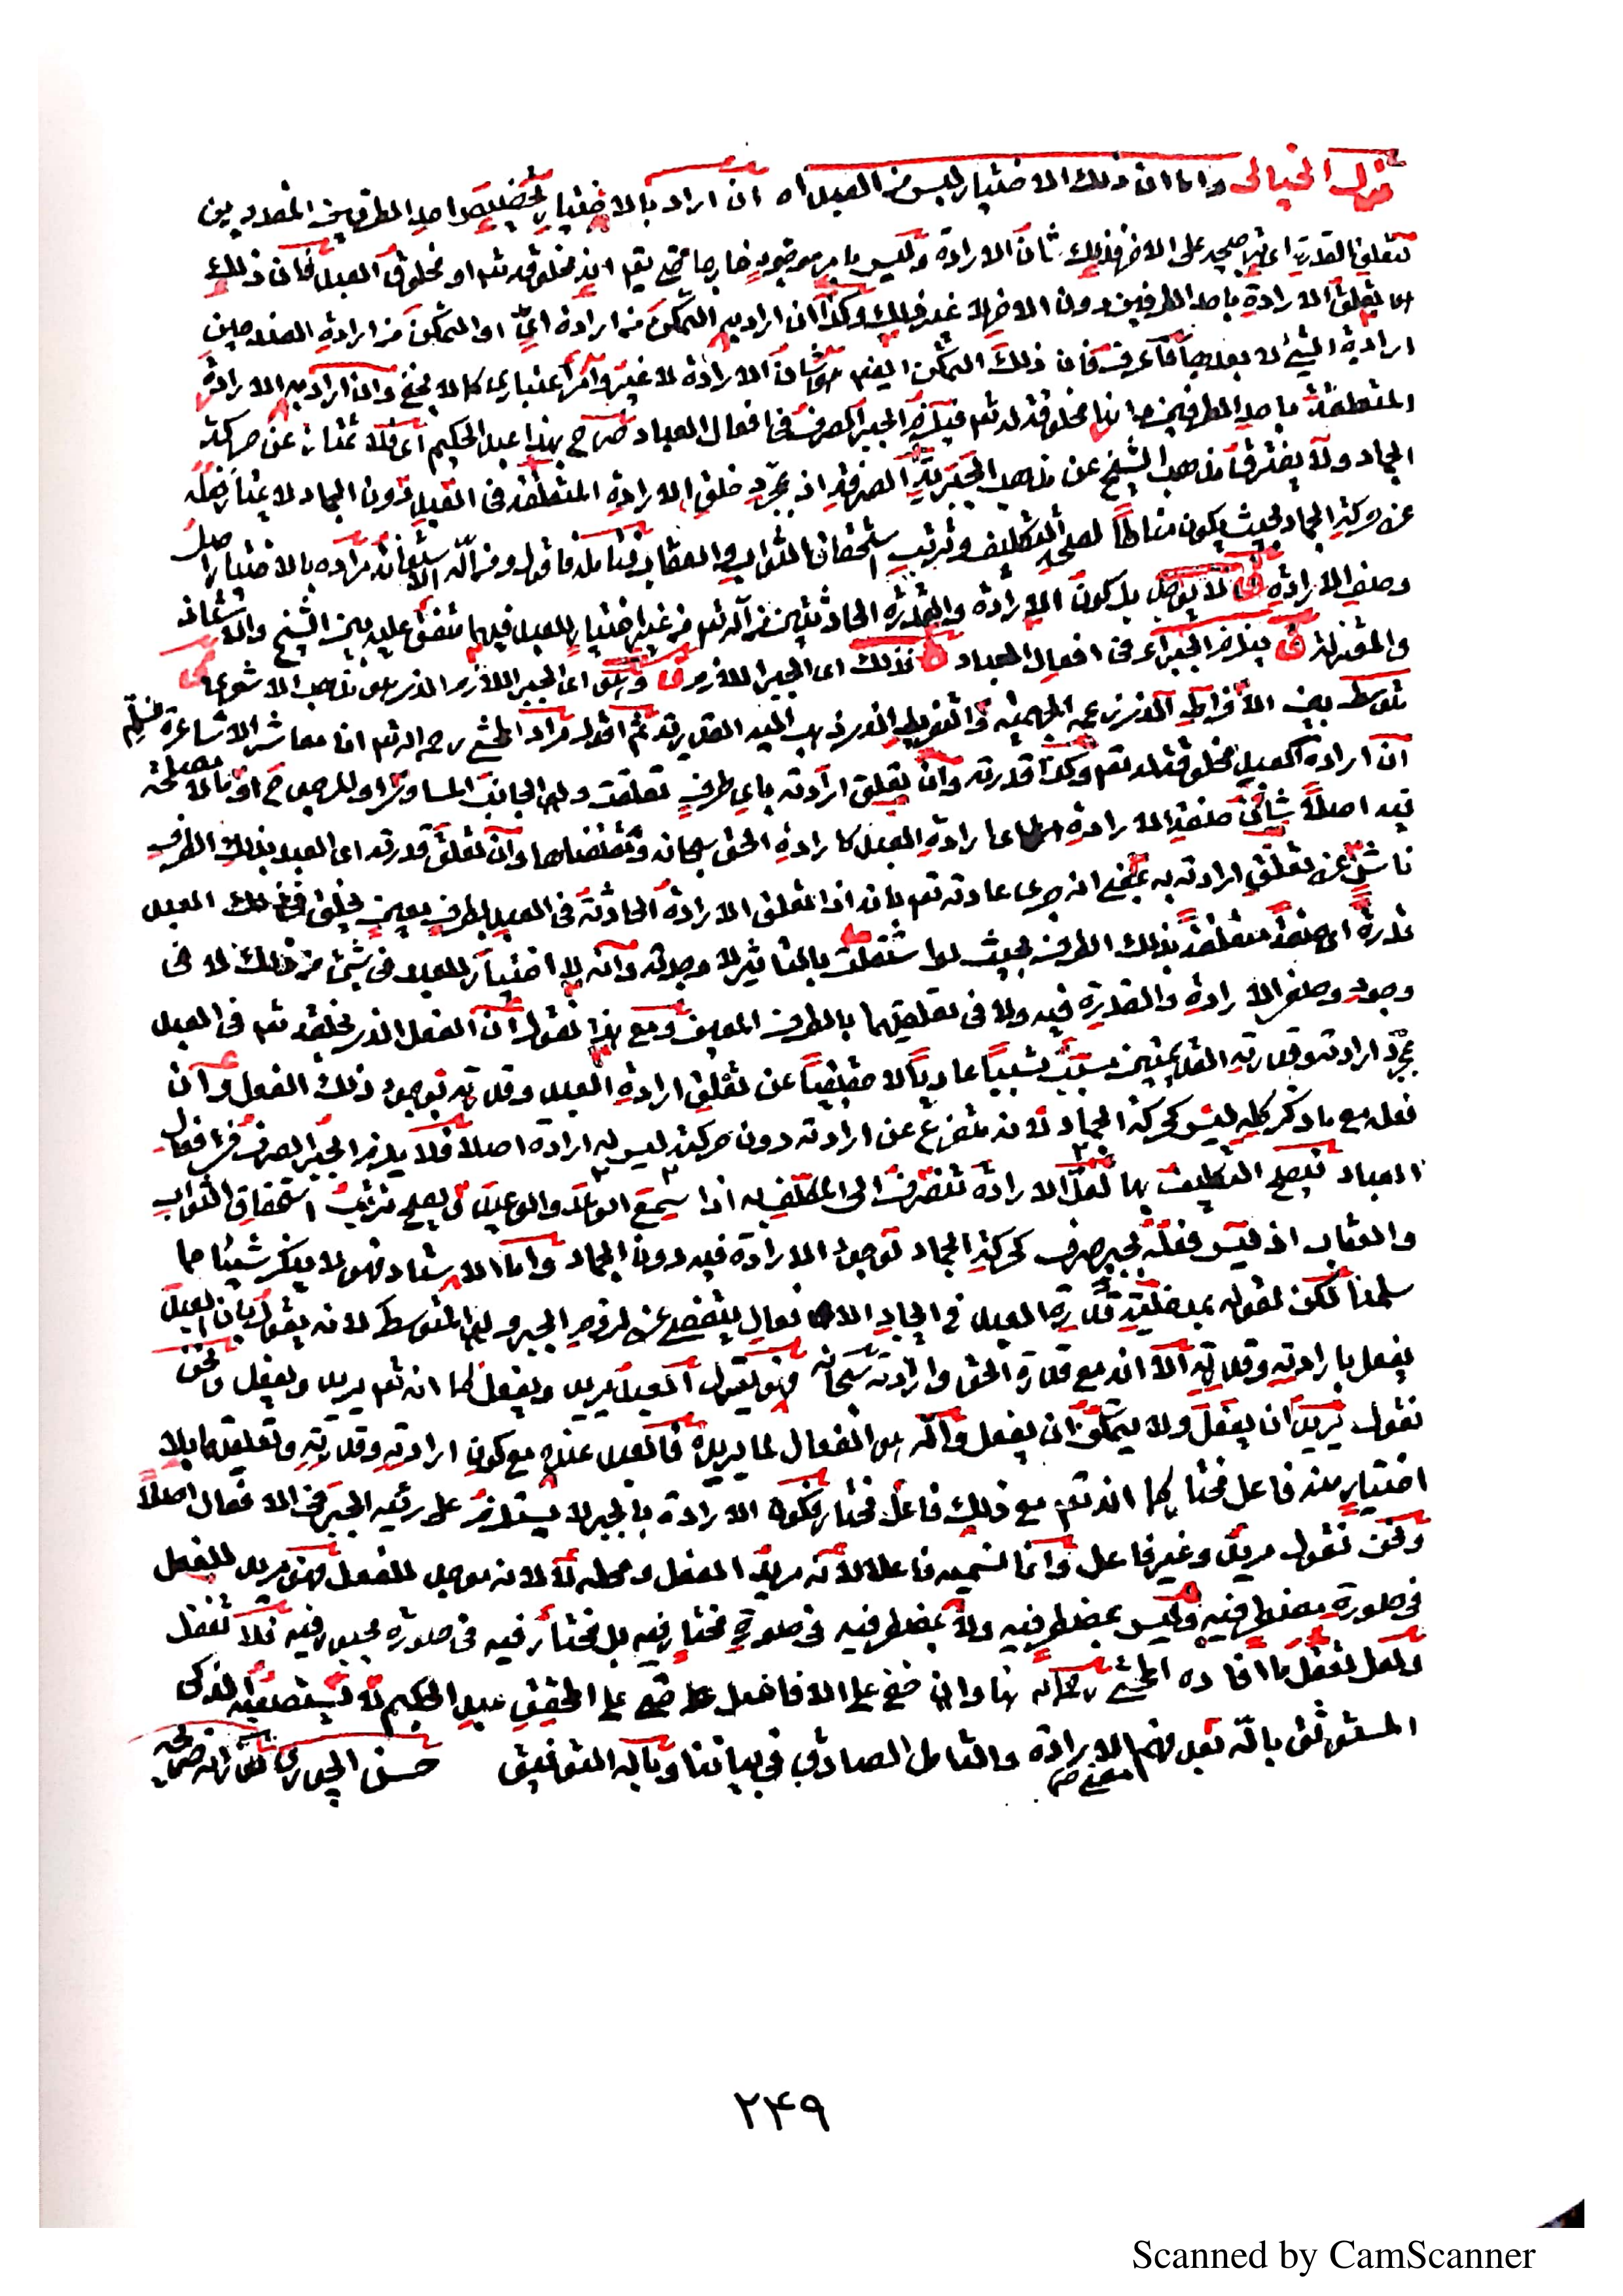 قول الخيالي واما ان ذلك الاختيار ليس من العبد اه ان اراد بالاختيار تخصيص احد الطرفين المقدورين
لتعلق القدرة اى ترجيحه على الاخر فذلك شان الارادة وليس بامر موجود خارجا حتى يقم انه مخلوقه تعم او مخلوق العبد فان ذلك
تعلق الارادة باحد الطرفين دون الاخر لا غير ذلك وكذا ان اراد به التمكن من ارادة اى او التمكن من ارادة الضد حين
ارادة الشئ لا بعدها كما عرف فان ذلك التمكن ايضم شان الارادة لا غير وامر اعتباري كما لا يخفى وان اراد به الارادة
المتعلقة باحد الطرفين انها مخلوقة له تعم فيلزم الجبر الصرف فى افعال العباد صرح بهذا عبد الحكيم اى فلا تمتاز عن حركة
الجماد ولا يفترق مذهب الشيخ عن مذهب الجبرية الصرفة اذ بمجرد خلق الارادة المتعلقة فى العبد دون الجماد لا يمتاز فعله
عن حركة الجماد بحيث يكون مناطا لصحة التكليف وترتب استحقاق الثواب والعقاب فتامله فاقول ومن الله الاستعانة مراده بالاختيار اصل
وصف الارادة لا بد كون الارادة والقدرة الحادثتين من الله تعم من غير اختيار للعبد فيهما متفق عليه بين الشيخ والاستاذ
والمعتزلة يلزم الجبر اى فى افعال العباد فذلك اى الجبر اللازم اى الجبر اللازم الذى هو مذهب الاشعري
توسط بين الافراط الذى زعمه الجهمية والتفريط الذى ذهب اليه القدرية ثم اقول مراد المحشي رحمه الله تعم انا معاشر الاشاعرة نسلم
ان ارادة العبد مخلوقة له تعم وكذا قدرته وان تعلق ارادته باي طرف تعلقت ولو الجانب المساوى او المرجوح او ما لا مصلحة
فيه اصلا شان صفة الارادة اى ارادة العبد كارادة الحق سبحانه ومقتضاها وان تعلق قدرته اى العبد بذلك الطرف
ناش عن تعلق ارادته به بمعنى انه جرى عادته تعم بانه اذا تعلق الارادة الحادثة فى العبد بطرف معين يخلق فى ذلك العبد
قدرة اى صفة متعلقة بذلك الطرف بحيث لو استقلت بالتاثير لا وجدته وانه لا اختيار للعبد فى شئ من ذلك لا فى
وجود وصفى الارادة والقدرة فيه ولا فى تعلقهما بالطرف المعين ومع هذا نقول ان الفعل الذى يخلقه تعم فى العبد
بمجرد ارادته وقدرته القديمتين مسبب تسببا عاديا لا حقيقيا عن تعلق ارادة العبد وقدرته بوجود ذلك الفعل وان
فعله مع ما ذكر كله ليس كحركة الجماد لانه متفرع عن ارادته دون حركة ليس له ارادة اصلا فلا يلزم الجبر الصرف فى افعال
العباد فيصح التكليف بها لعل الارادة تنصرف الى المكلف به اذا سمع الوعد والوعيد ويصح ترتيب استحقاق الثواب
والعقاب اذ ليس فعله بجبر صرف كحركة الجماد لوجود الارادة فيه دون الجماد واما الاستاذ فهو لا ينكر شيئا مما
سلمنا لكن لقوله بمدخلية قدرة العبد فى ايجاد الافعال يتخلص عن لزوم الجبر ولو المتوسط لانه يقول بان العبد
يفعل بارادته وقدرته الا انه مع قدرة الحق وارادته سبحانه فهو يقول العبد يريد ويفعل كما انه تعم يريد ويفعل ونحن
نقول يريد ان يفعل ولا يتمكن ان يفعل والله هو الفعال لما يريد فالعبد عنده مع كون ارادته وقدرته وتعلقهما بلا
اختيار منه فاعل مختار كما انه تعم مع ذلك فاعل مختار فكون الارادة بالجبر لا يستلزم على رئيه الجبر فى الافعال اصلا
ونحن نقول مريد وغير فاعل وانما نسميه فاعلا لانه مريد الفعل ومحله لا لانه موجد للفعل فهو مريد للفعل
فى صورة مضطر فيه وليس بمضطر فيه ولا بمضطر فيه فى صورة مختار فيه بل مختار فيه فى صورة مجبور فيه فلا تغفل
ولعل لفعل ما افاده المحشي وان خفى على الافاضل حتى على المحقق عبد الحكيم لا يستصعبه الذكى
المستوثق بالله بعد فهم معنى الارادة والتامل الصادق فى بياننا وبالله التوفيق حسن الجوري
۲۴۹
Scanned by CamScanner